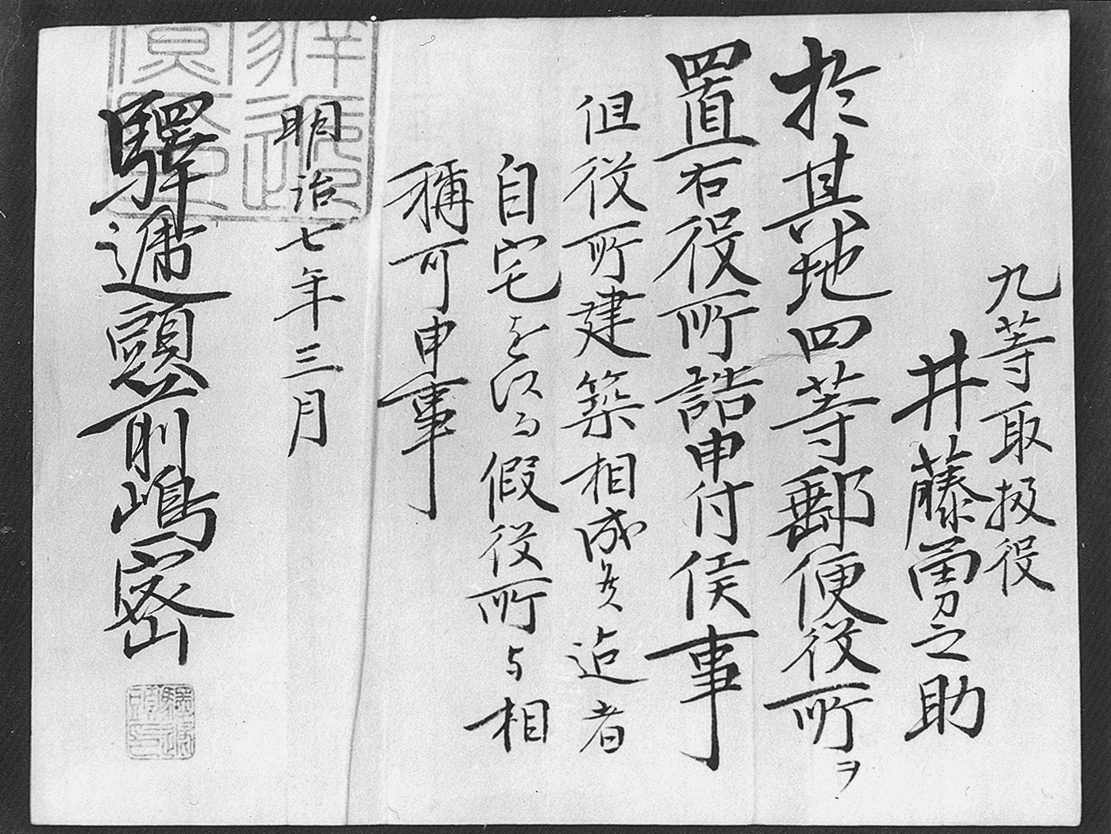 九等取扱役
井藤勇之助
於其地四等郵便役所ヲ
置右役所詰申付候事
但役所建築相成候迠者
自宅を以而假役所与相
稱可申事
明治七年三月
驛遞頭前嶋密
驛遞
頭印